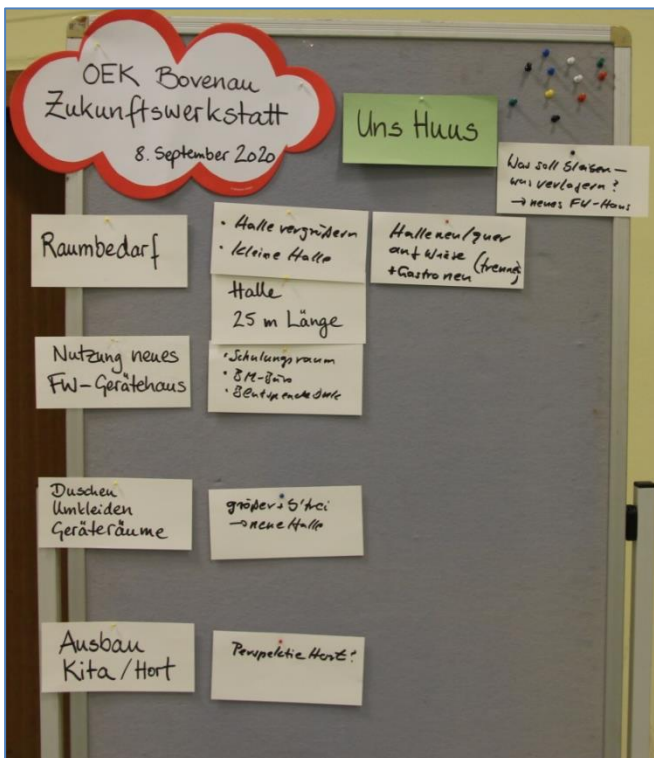 OEK Bovenau
Zukunftswerkstatt
8. September 2020
Uns Huus
Was soll bleiben –
was verlagern?
→ neues FW-Haus
Raumbedarf
• Halle vergrößern
• kleine Halle
Halle neu/quer
auf Wiese (trennb.)
+ Gastro neu
Halle
25 m Länge
Nutzung neues
FW-Gerätehaus
• Schulungsraum
• BM-Büro
• Blutspende
Duschen
Umkleiden
Geräteräume
größer + b'frei
→ neue Halle
Ausbau
Kita / Hort
Perspektive Hort?